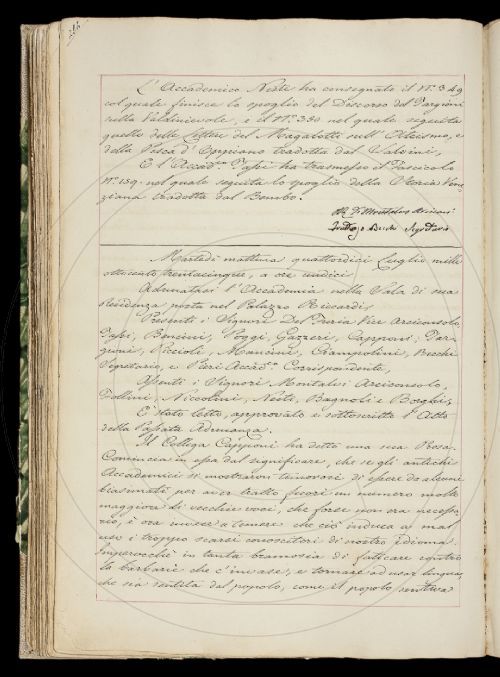 L'Accademico Nesti ha consegnato il N.° 349
col quale finisce lo spoglio del Discorso del Targioni
sulla Valdinievole, e il N.° 350 nel quale seguita
quello delle Lettere del Magalotti sull'Ateismo, e
della Pesca d'Oppiano tradotta dal Salvini,
E l'Accad.co Tassi ha trasmesso il Fascicolo
N.° 159. nel quale seguita lo spoglio della Storia Vene
ziana tradotta dal Bembo.
Segretario
Martedì mattina quattordici Luglio mille
ottocento trentacinque, a ore undici
Adunatasi l'Accademia nella Sala di sua
Residenza posta nel Palazzo Riccardi,
Presenti i Signori Del Furia Vice Arciconsolo
Tassi, Bencini, Poggi, Gazzeri, Capponi, Tar
gioni, Piccioli, Mancini, Ciampolini, Becchi
Segretario, e Pieri Accad.co Corrispondente,
Assenti i Signori Montalvi Arciconsolo,
Follini, Niccolini, Nesti, Bagnoli e Borghi,
E' stato letto, approvato e sottoscritto l'Atto
della Passata Adunanza.
Il Collega Capponi ha detto una sua Prosa.
Comincia in essa dal significare, che se gli antichi
Accademici si mostraron timorosi di essere da alcuni
biasimati per aver tratto fuori un numero molto
maggiore di vecchie voci, che forse non era necessa
rio, è ora invece a temere che ciò induca a mal
uso i troppo scarsi conoscitori di nostro idioma.
Imperocchè in tanta bramosia di faticare contro
la barbarie che c'invase, e tornare ad usar lingua,
che sia sentita dal popolo, come il popolo sentiva